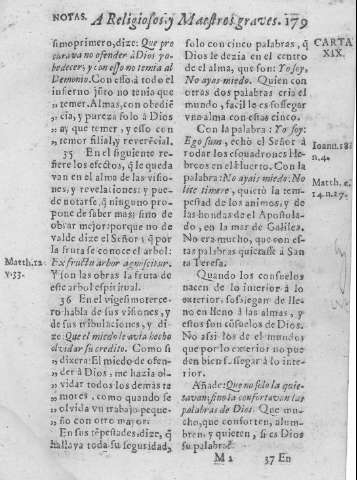 NOTAS. A Religiosos, y Maestros graves. 179
simo primero, dize: Que pro
curava no ofender à Dios po
bedecer; y con esso no temia al
Demonio. Con esso à todo el
infierno juro no tenia que
,, temer. Almas, con obediẽ
,, cia, y pureza solo à Dios
,, ay que temer, y esso con
,, temor filial, y reverécial.
35 En el siguiente re
fiere los efectos, que le queda
van en el alma de las visio
nes, y revelaciones: y pue
de notarse, q̃ ninguno pro
pone de saber mas; sino de
obrar mejor: porque no
de valde dize el Señor, q̃ por
la fruta se conoce el arbol:
Matth. 12
v. 33.
Ex fructu arbor agnoscitur.
Y son las obras la fruta de
este arbol espiritual.
36 En el vigesimotercero
habla de sus visiones, y
de sus tribulaciones, y di
ze: Que el miedo le avia hecho
olvidar su credito. Como si
,, dixera: El miedo de ofen
,, der à Dios, me hazia ol
,, vidar todos los demàs te
,, mores, como quando se
,, olvida vn trabajo peque
,, ño con otro mayor.
En sus tẽpestades, dize, q̃
hallava toda su seguridad,
solo con cinco palabras, q̃
Dios le dezia en el centro
de el alma, que son: Yo soy,
No ayas miedo. Quien con
otras dos palabras cria el
mundo, facil le es sossegar
vn alma con essas cinco.
CARTA
XIX.
Con la palabra: Yo soy:
Ego sum, echò el Señor à
rodar los esquadrones He
breos en el Huerto. Con la
palabra: No ayais miedo: No
lite timere, quietò la tempes
tad de los animos, y de
las hondas de el Apostola
do, en la mar de Galilea.
No era mucho, que con es
tas palabras quietasse à San
ta Teresa.
Ioann. 18
n. 4.
Matth. c.
14. n. 27.
Quando los consuelos
nacen de lo interior à lo
exterior, sossiegan de lle
no en lleno à las almas, y
estos son consuelos de Dios.
No assi los de el mundo,
que por lo exterior no pue
den bien sossegar à lo inte
rior.
Añade: Que no solo la quie
tavan; sino la confortavan las
palabras de Dios. Que mu
cho, que conforten, alum
bren, y quieten, si es Dios
su palabra?
M 2 37 En